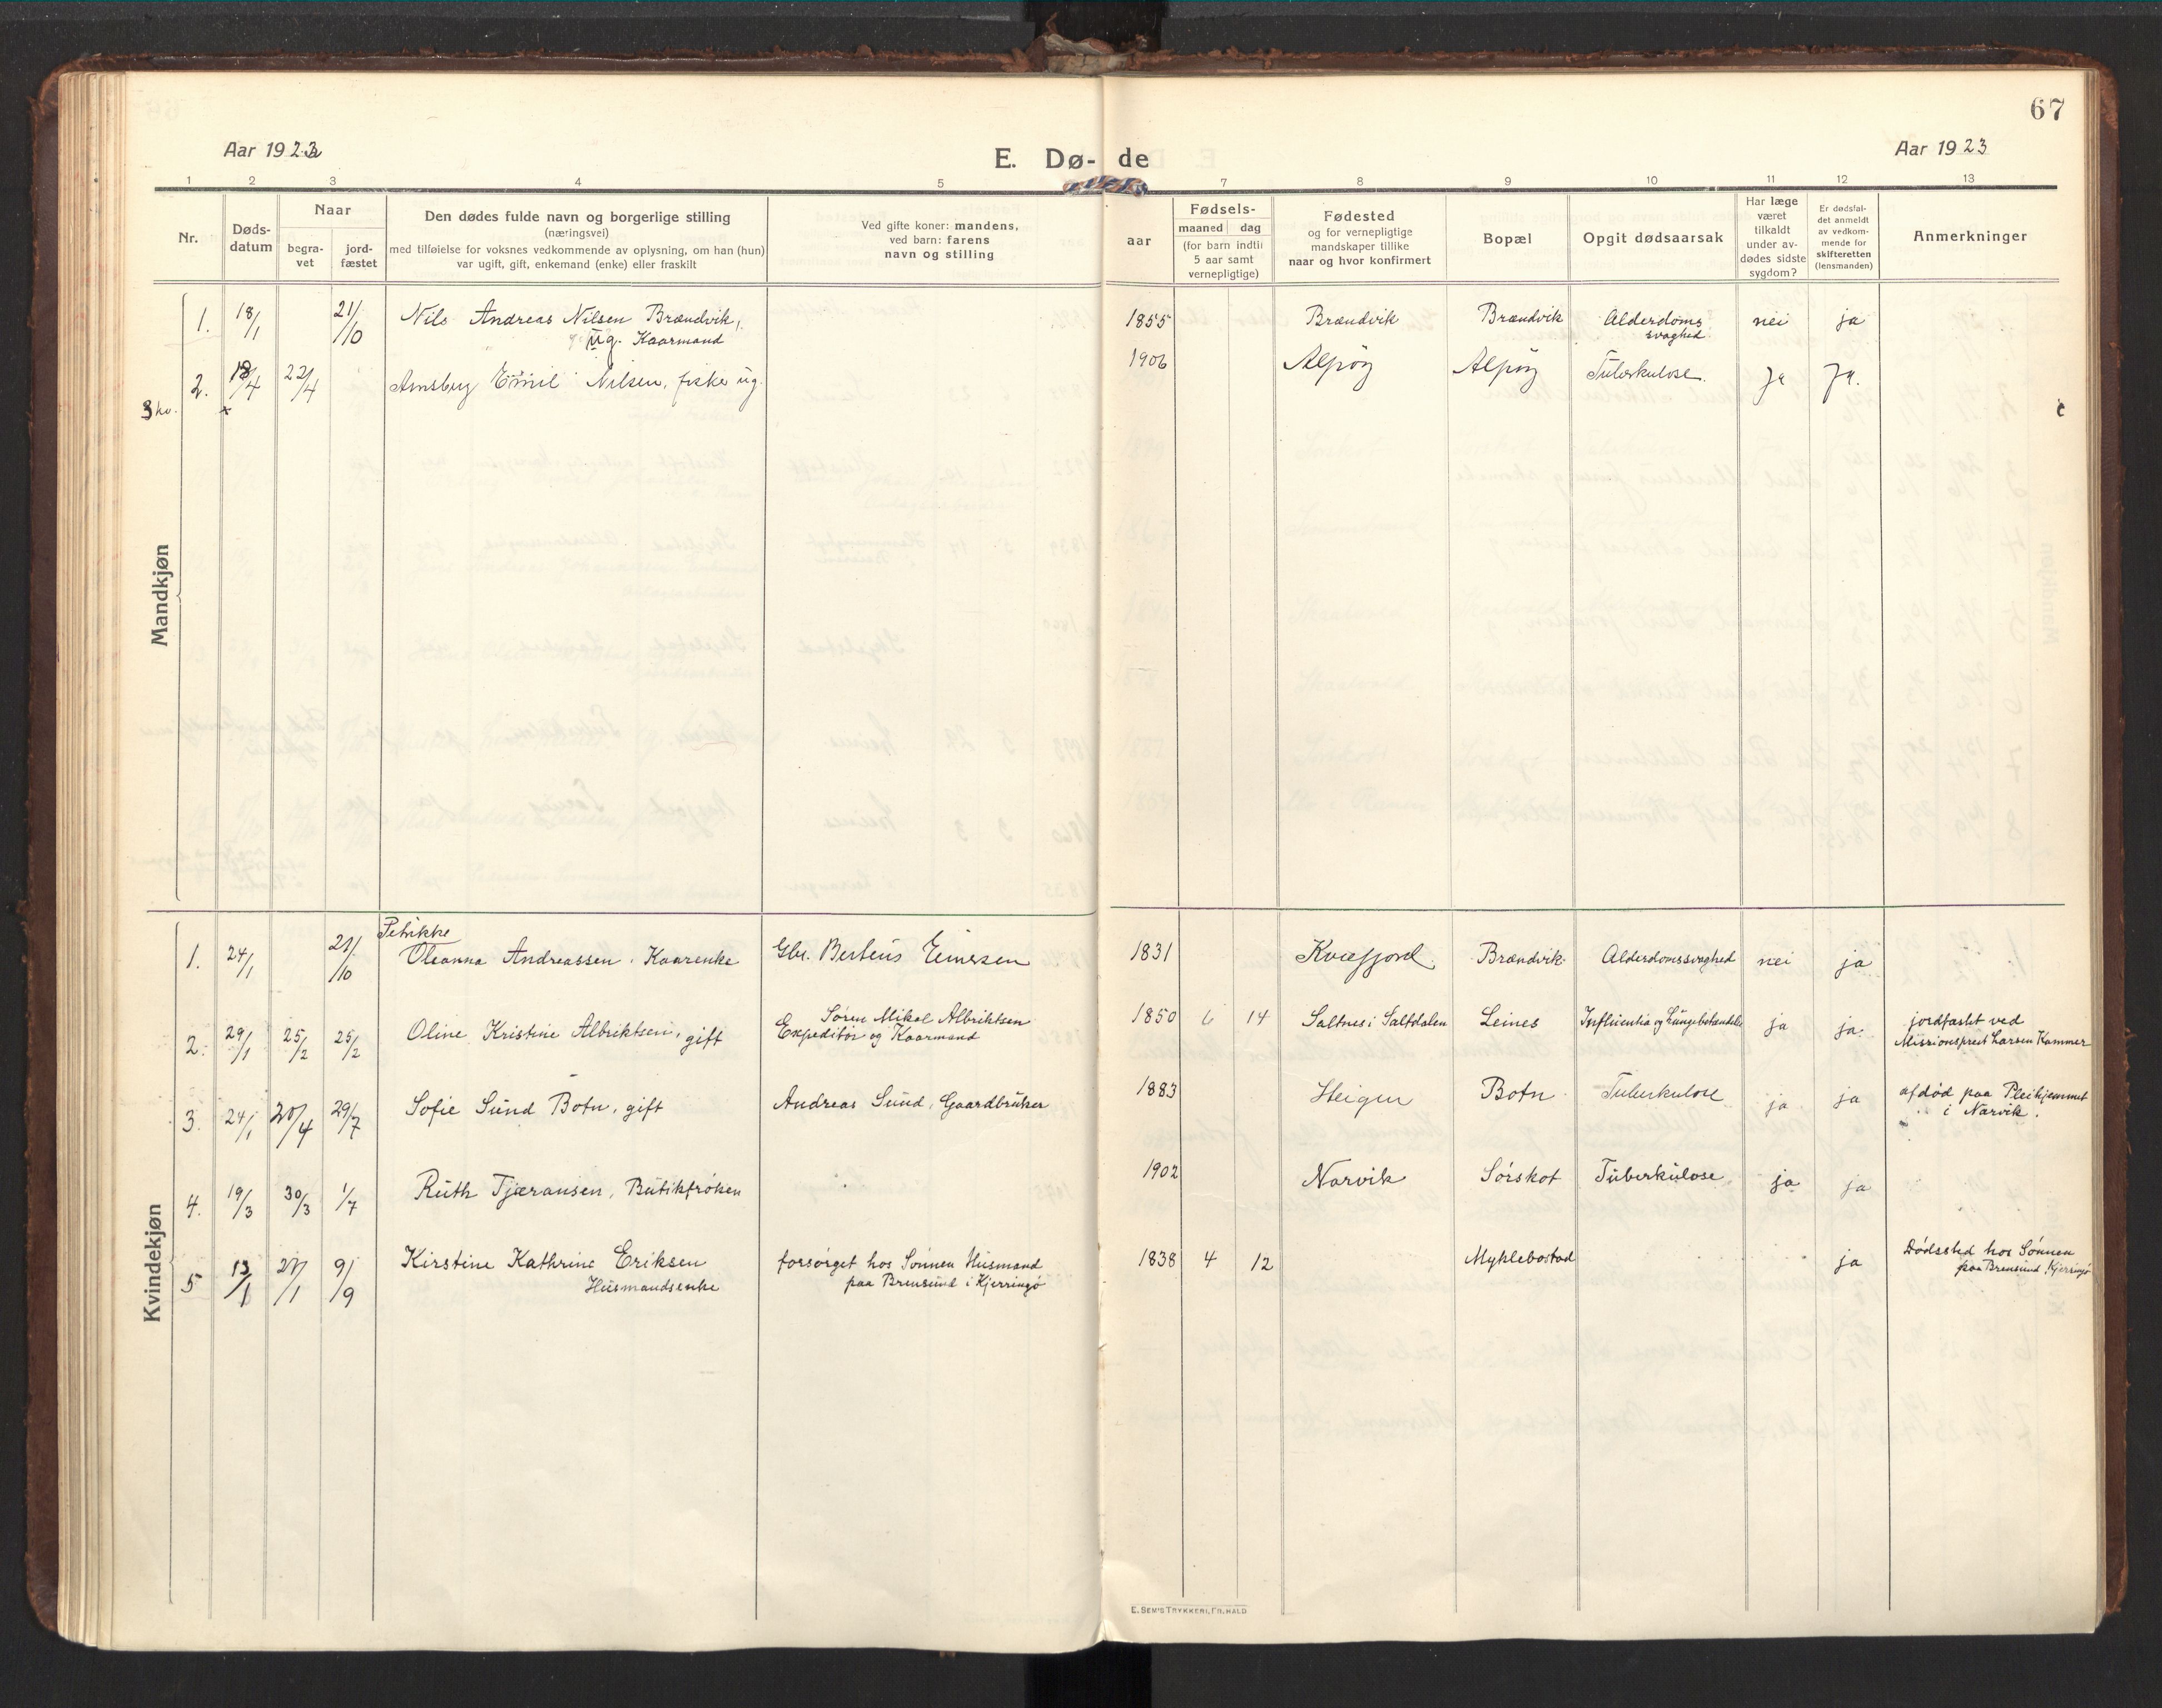 67
Aar 1923
E. Dø- de
Aar 1923
1 2 3 4 5 7 8 9 10 11 12 13
Nr.
Døds-
datum
Naar
begra-
vet
jord-
fæstet
Den dødes fulde navn og borgerlige stilling
(næringsvei)
med tilføielse for voksnes vedkommende av oplysning, om han (hun)
var ugift, gift, enkemand (enke) eller fraskilt
Ved gifte koner: mandens,
ved barn: farens
navn og stilling
aar
Fødsels-
maaned dag
(for barn indtil
5 aar samt
vernepligtige)
Fødested
og for vernepligtige
mandskaper tillike
naar og hvor konfirmert
Bopæl
Opgit dødsaarsak
Har læge
været
tilkaldt
under av-
dødes sidste
sygdom?
Er dødsfal-
det anmeldt
av vedkom-
mende for
skifteretten
(lensmanden)
Anmerkninger
Mandkjøn
1. 18/1 21/10 Nils Andreas Nilsen Brændvik, 1855 Brændvik Brændvik Alderdoms nei ja
ug. Kaarmand svaghed
2. 18/4 22/4 Arnsberg Emil Nilsen, fisker ug. 1906 Alpøy Alpøy Tuberkulose. ja ja.
Kvindekjøn
Petrikke
1. 24/1 21/10 Oleanna Andreassen. Kaarenke Gbr. Berteus Einersen 1831 Kvæfjord. Brændvik Alderdomssvaghed nei ja
2. 29/1 25/2 25/2 Oline Kristine Albriktsen, gift Søren Mikal Albriktsen 1850 6 14 Saltnes i Saltdalen Leines Influentia og Lungebetændelse ja ja. jordfæstet ved
Expeditør og Kaarmand Missionsprest Larsen Kammer
3. 24/1 20/4 29/7 Sofie Sund Botn, gift Andreas Sund, Gaardbruker 1883 Steigen Botn Tuberkulose ja ja afdød paa Pleihjemmet
i Narvik.
4. 19/3 30/3 1/7 Ruth Tjæransen, Butikfrøken 1902 Narvik Sørskot Tuberkulose ja ja
5 13/1 27/1 9/9 Kirstine Kathrine Eriksen forsørget hos Sønnen Husmand 1838 4 12 Myklebostad ja Dødssted hos Sønnen
Husmandsenke paa Brensund i Kjerringø paa Brensund, Kjerringø
E. SEM'S TRYKKERI, FR.HALD